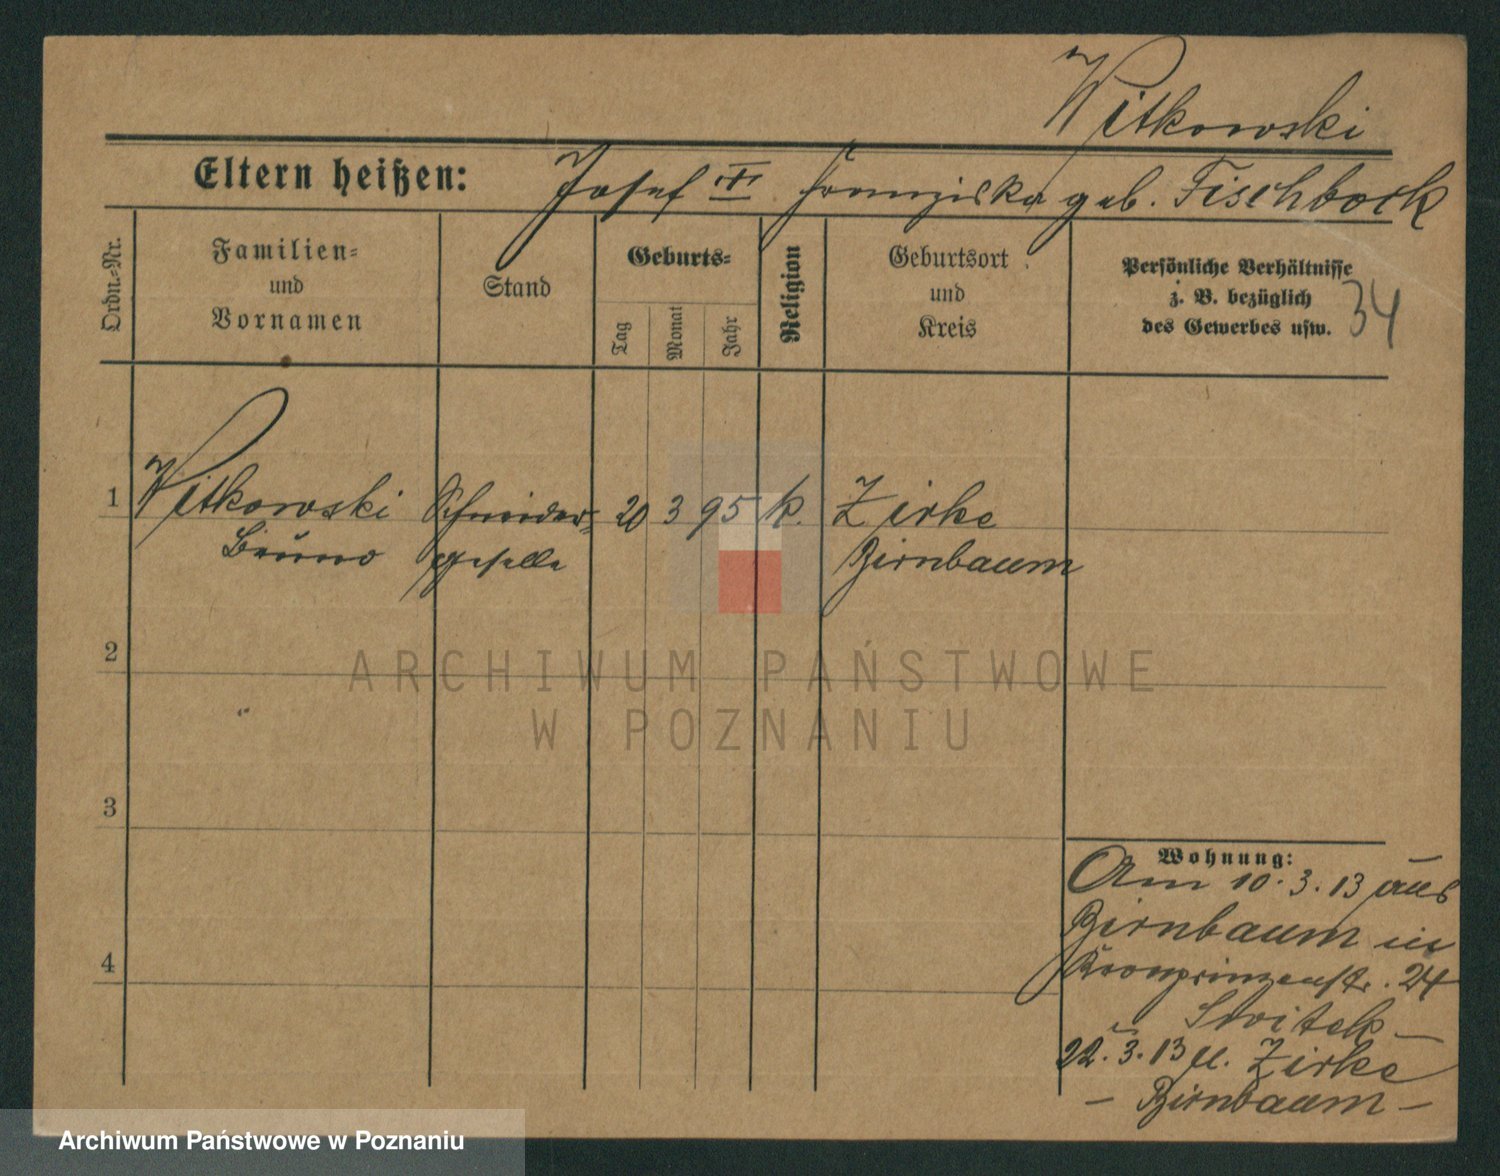 Witkowski
Eltern heißen: Josef III Franziska geb. Fischbock
Ordn.-Nr.
Familien-
und
Vornamen
Stand
Geburts-
Tag
Monat
Jahr
Religion
Geburtsort
und
Kreis
Persönliche Verhältnisse
z. B. bezüglich
des Gewerbes usw.
34
1 Witkowski Schneider- 20 3 95 k. Zirke
Bruno geselle Birnbaum
2
ARCHIWUM PAŃSTWOWE
W POZNANIU
3
4
Wohnung:
Am 10.3.13 aus
Birnbaum in
Kronprinzenstr. 24
Switek
22.3.13 n. Zirke
- Birnbaum -
Archiwum Państwowe w Poznaniu